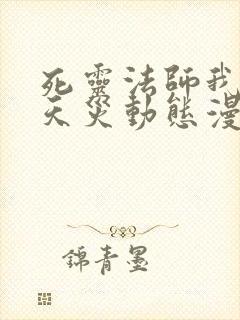 死靈法師我
天災動態漫
錦青墨